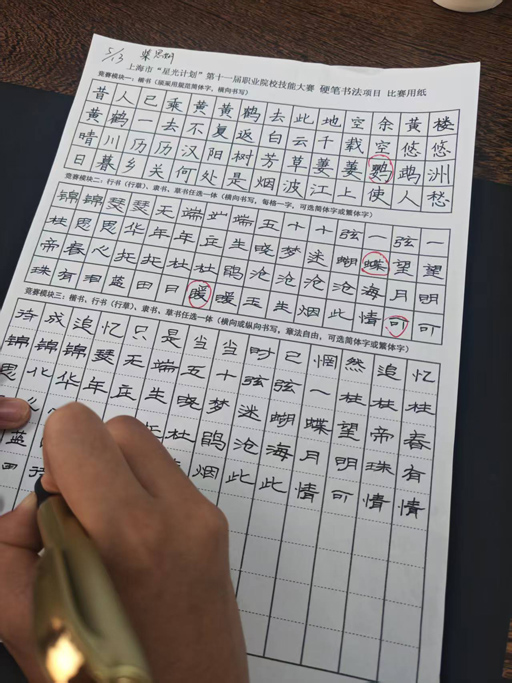 5/13
上海市“星光计划”第十一届职业院校技能大赛 硬笔书法项目 比赛用纸
竞赛模块一：楷书（须采用规范简体字，横向书写）
昔人已乘黄黄鹤去此地空余黄楼
黄鹤一去不复返白云千载空悠悠
晴川历历汉阳树芳草萋萋鹦鹉洲
日暮乡关何处是烟波江上使人愁
竞赛模块二：行书（行草）、隶书、草书任选一体（横向书写，每格一字，可选简体字或繁体字）
锦锦瑟瑟无端五十十弦一弦一
柱思思华年年庄生晓梦迷蝴蝶望望
帝春心托托杜鹃沧沧沧海月明
珠有泪蓝田日暖暖玉生烟此情可可
竞赛模块三：楷书、行书（行草）、隶书、草书任选一体（横向或纵向书写，章法自由，可选简体字或繁体字）
待成追忆只是当当时已惘然追忆
锦锦瑟无端五十弦弦一柱柱
思华年庄生晓梦迷蝴蝶望帝春
心托杜鹃沧海月明珠有
蓝烟此此情可情情